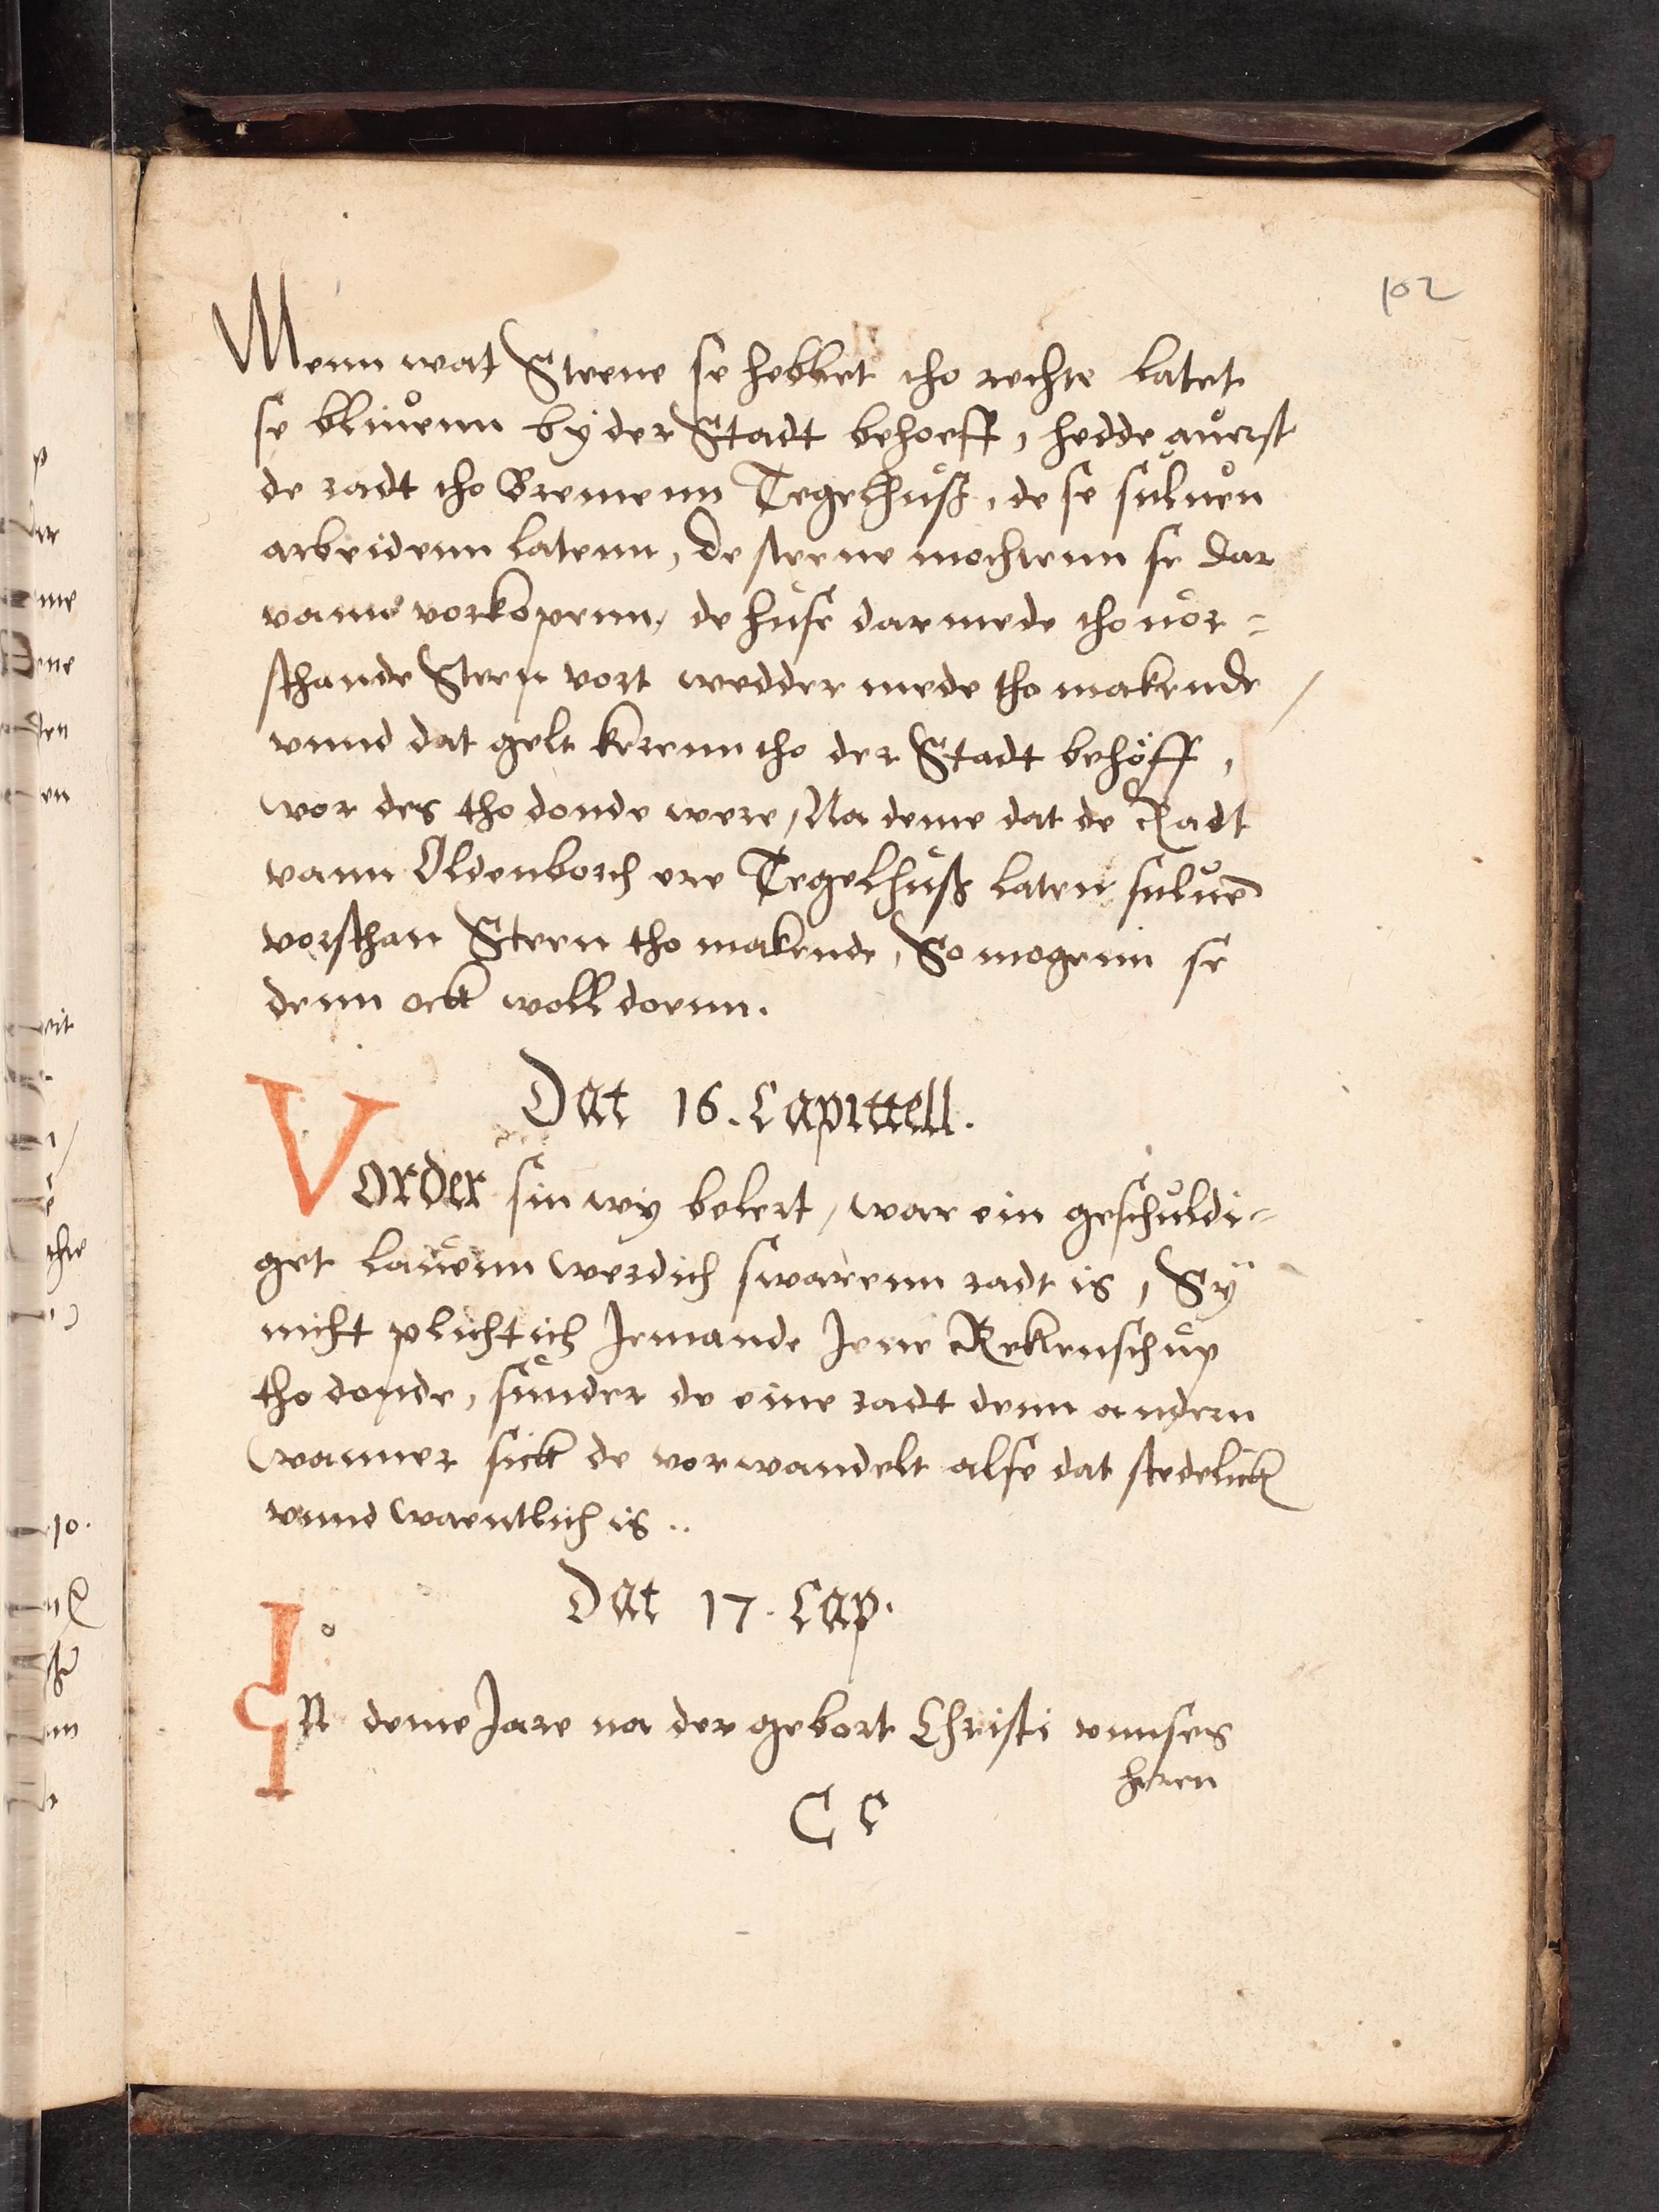 102
Menn wat Steene se hebbet tho rechte latet
se bliuenn by der Stadt behoeff, hedde auerst
de radt tho Bremenn Tegelhuß, de se suluen
arbeidenn latenn, de steene mochtenn se dar
vann vorkopenn, de huse darmede tho uor=
sthande Steen vort wedder mede tho makende /
vnnd dat gelt kerenn tho der Stadt behöff,
wor des tho donde were, Na deme dat de Radt
vann Oldenborch ere Tegelhuß laten suluen
vorsthan Steen tho makende, So mogenn se
denn ock woll doenn.
Dat 16. Capittell.
Vorder sin wy belert, war ein geschuldi=
get lauenn werdich swarenn radt is, Sÿ
nicht plichtich Jemande Jene Rekenschup
tho donde, sunder de eine radt denn andern
wanner sick de vorwandelt alse dat stedelick
vnnd waentlich is..
Dat 17. Cap.
IN deme Jare na der gebort Christi vnnses
heren
C c